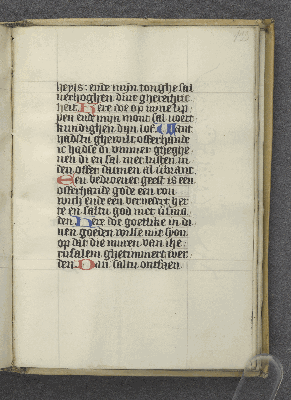 heyls: ende mijn tonghe sal
verhoghen dine gherechtic
heit Here doe op mine lip
pen ende mijn mont sal voert
kundighen dijn lof Want
haddstu ghewilt offerhande
ic hadse di ummer gheghe
nen di en sal niet lusten in
den offer daer men al verbrant
Een bedroevet geest is een
offerhande gode een rou
wich ende een vernedert her
te en saltu god niet versma
den Here doe goetlike in di
nen goeden wille mit syon
op dat die muren van ihe
rusalem ghetimmert wer
den Dan saltu ontfaen